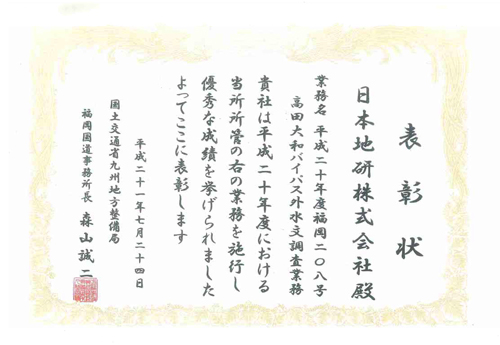 表彰状
日本地研株式会社殿
業務名 平成二十年度福岡二〇八号
高田大和バイパス外水文調査業務
貴社は平成二十年度における
当所所管の右の業務を施行し
優秀な成績を挙げられました
よってここに表彰します
平成二十一年七月二十四日
国土交通省九州地方整備局
福岡国道事務所長 森山誠二